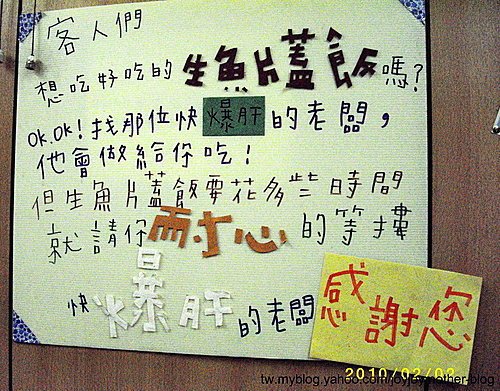 客人們
想吃好吃的生魚片蓋飯嗎?
OK.OK!找那位快爆肝的老闆,
他會做給你吃!
但生魚片蓋飯要花多些時間
就請你耐心的等摟
快爆肝的老闆
感謝您
tw.myblog.yahoo.com/joyjoymother-blog